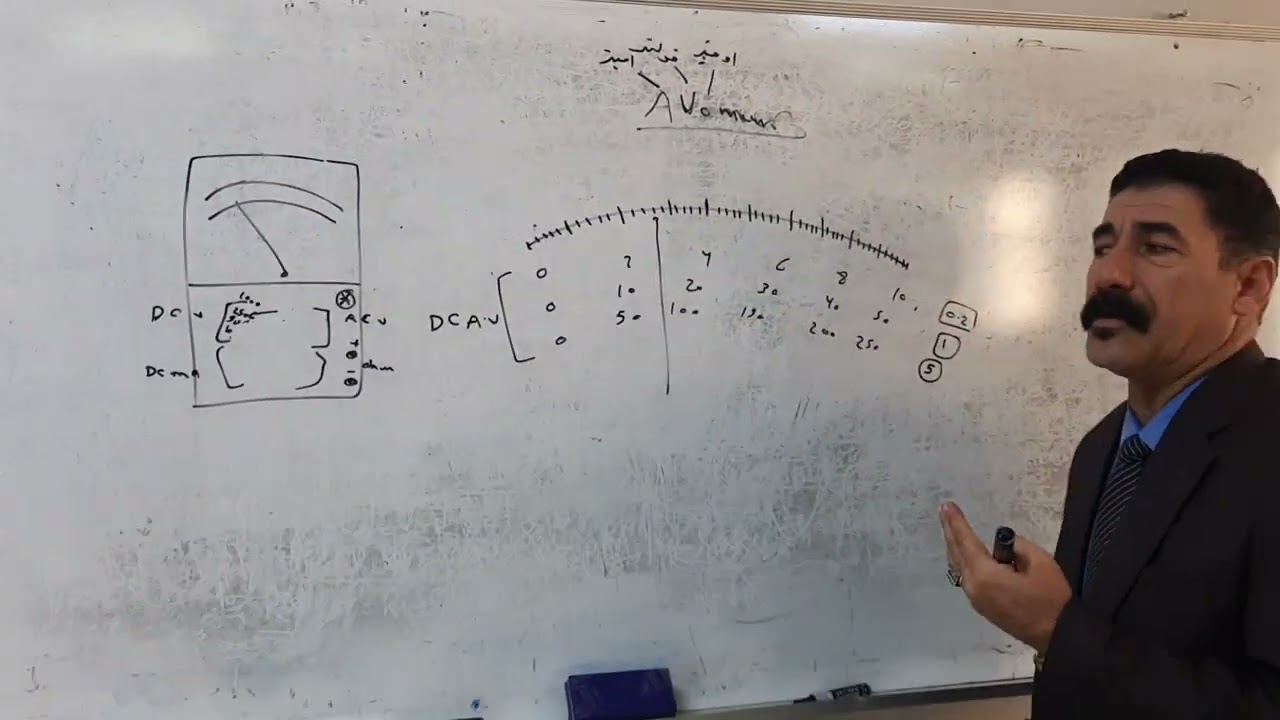 امبير فولت اوميتر
AVometer
DC v
1000
AC v
DC mA
+
-
ohm
DC A.V
0 2 4 6 8 10
0 10 20 30 40 50
0 50 100 150 200 250
0.2
1
5